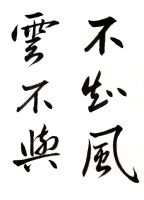 不知風
雲不與